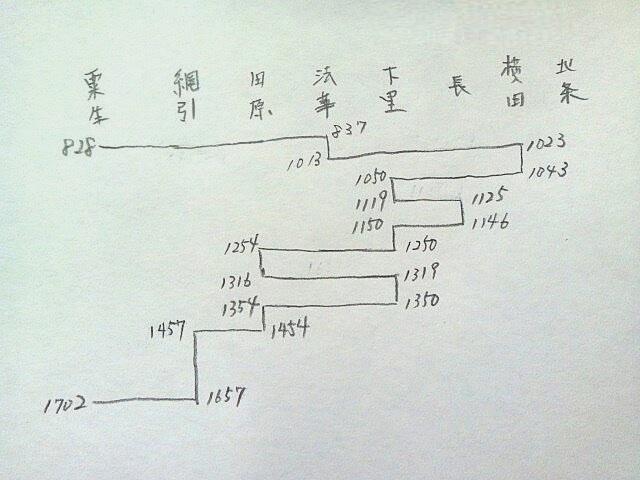 粟生 網引 田原 法華 下里 長 横田 北条
828 837
1013 1023
1050 1043
1119 1125
1150 1146
1254 1250
1316 1319
1354 1350
1457 1454
1702 1657